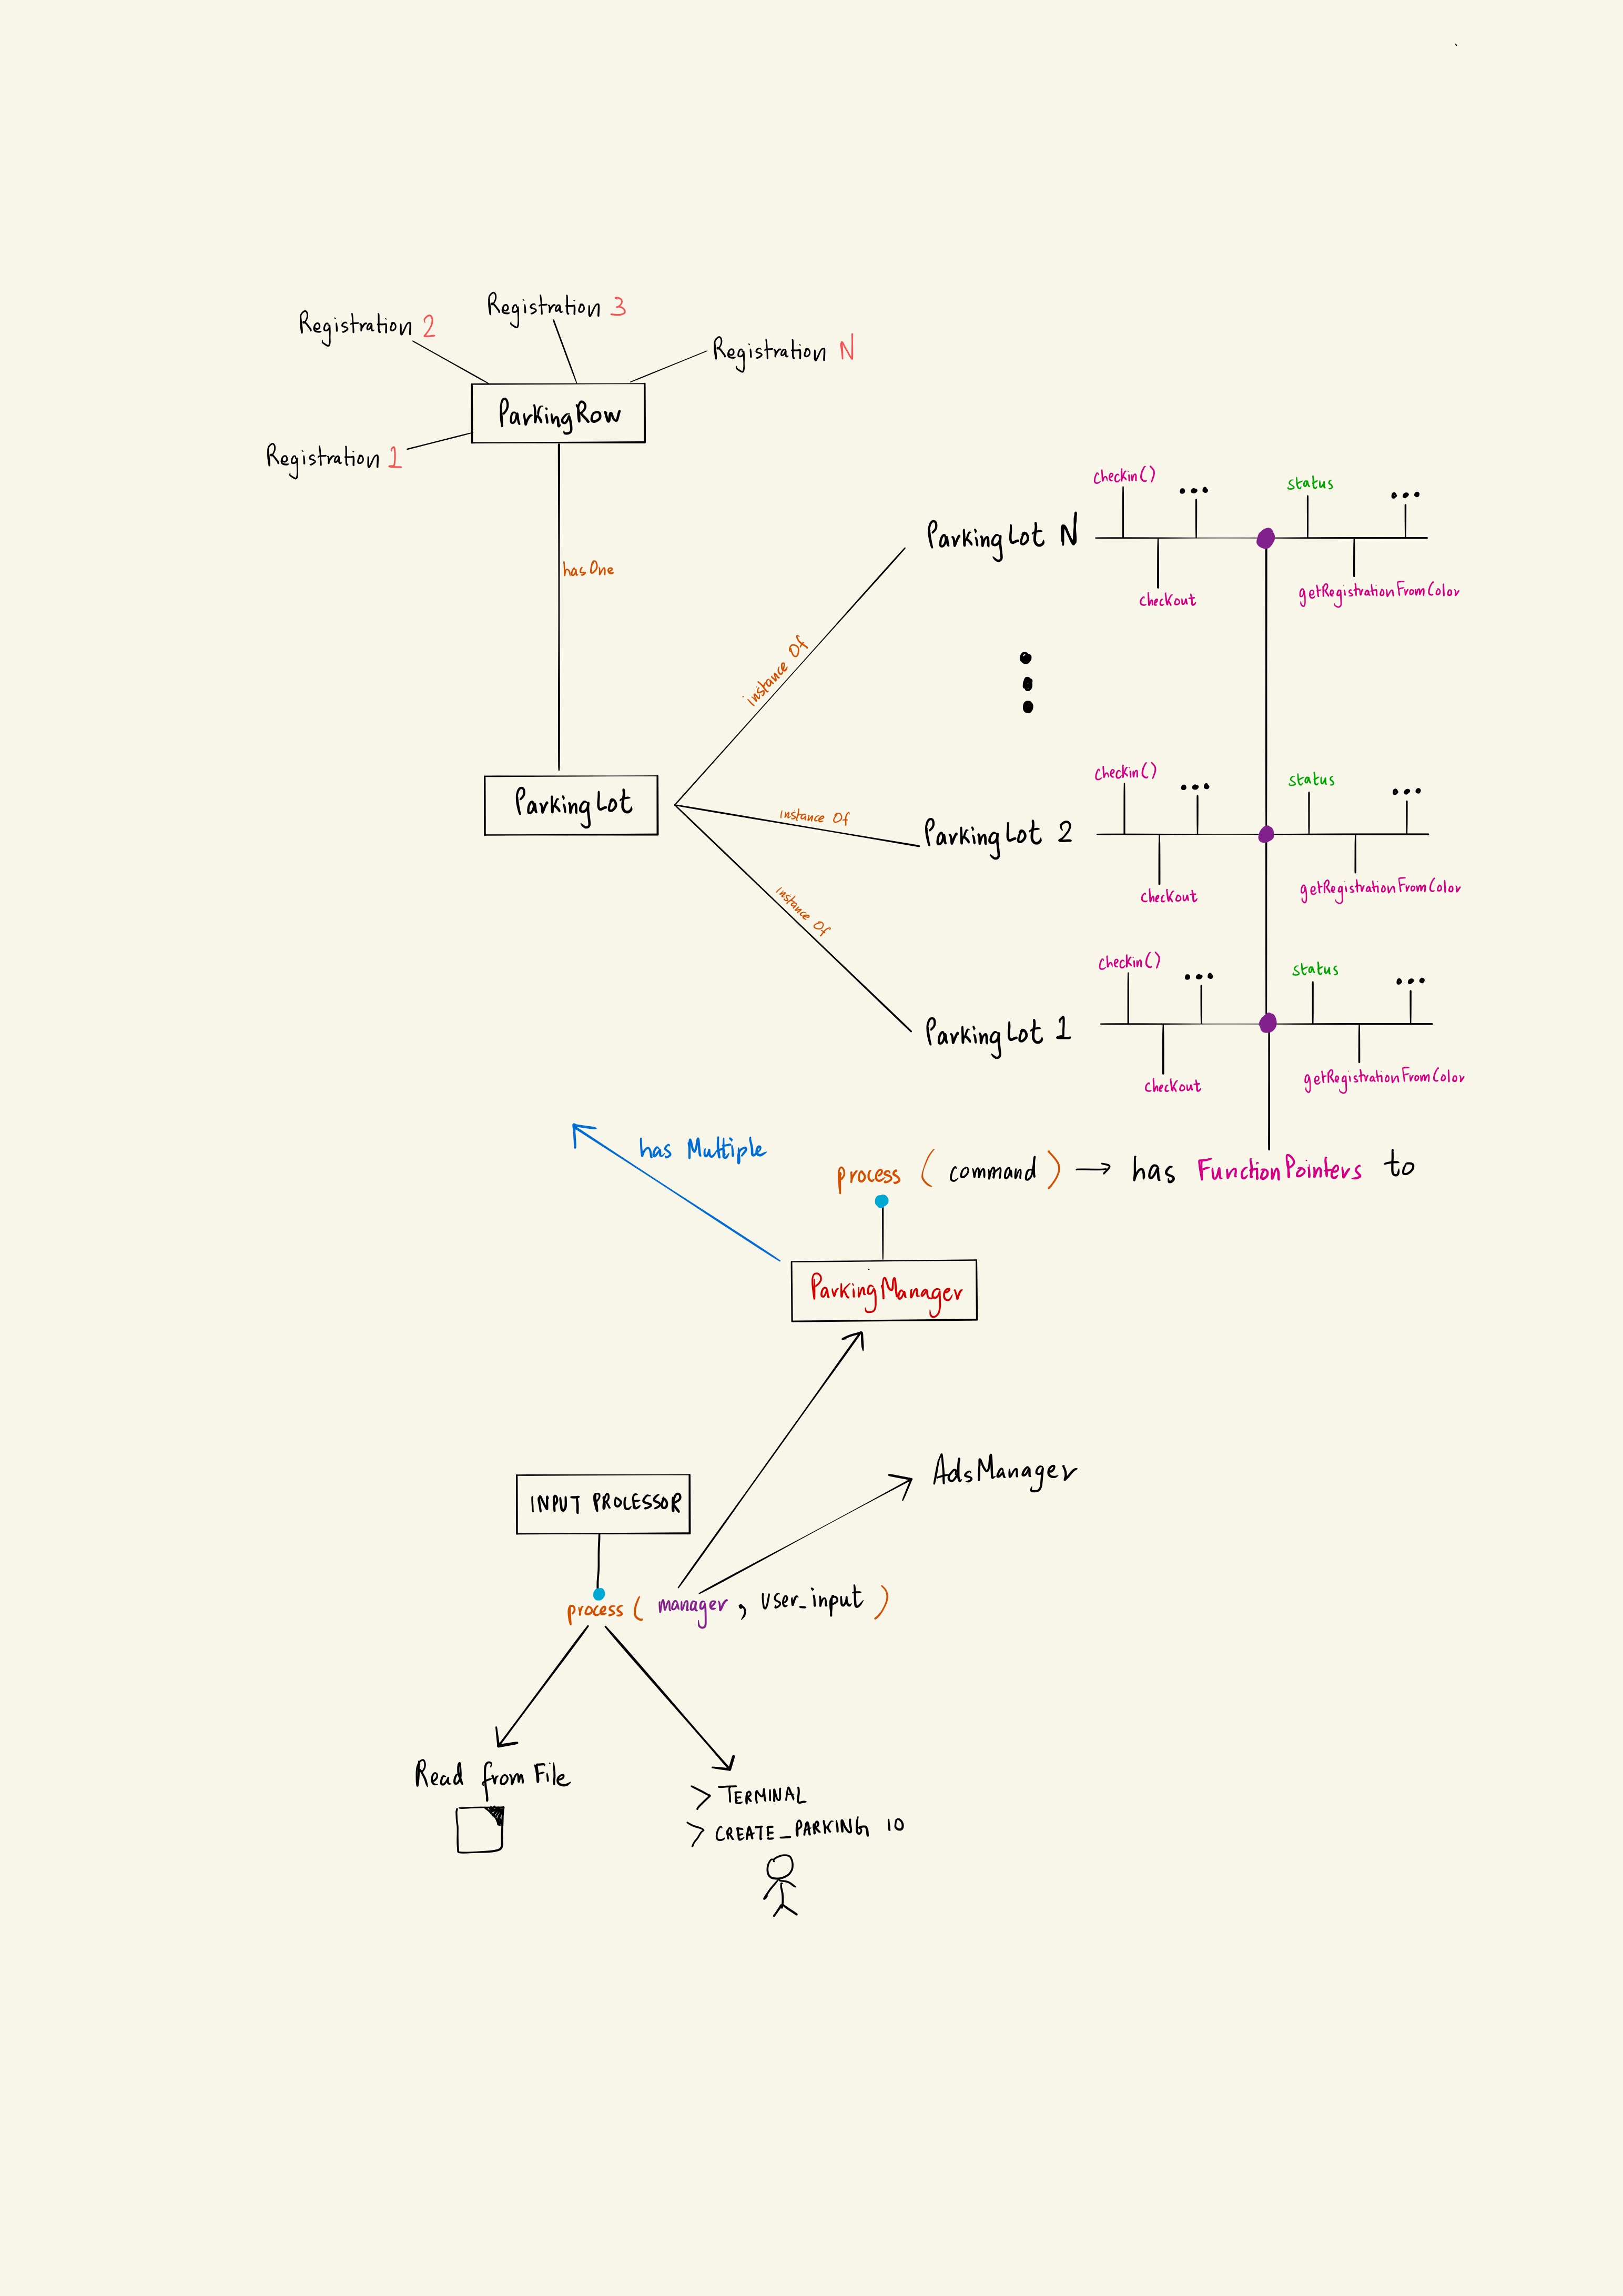 Registration 3
Registration 2
Registration N
ParkingRow
Registration 1
hasOne
ParkingLot
instance Of
instance Of
instance Of
ParkingLot N
checkin()
...
status
...
checkout
getRegistrationFromColor
ParkingLot 2
checkin()
...
status
...
checkout
getRegistrationFromColor
ParkingLot 1
checkin()
...
status
...
checkout
getRegistrationFromColor
has Multiple
process ( command ) → has FunctionPointers to
ParkingManager
AdsManager
INPUT PROCESSOR
process ( manager , user_input )
Read from File
> TERMINAL
> CREATE_PARKING 10